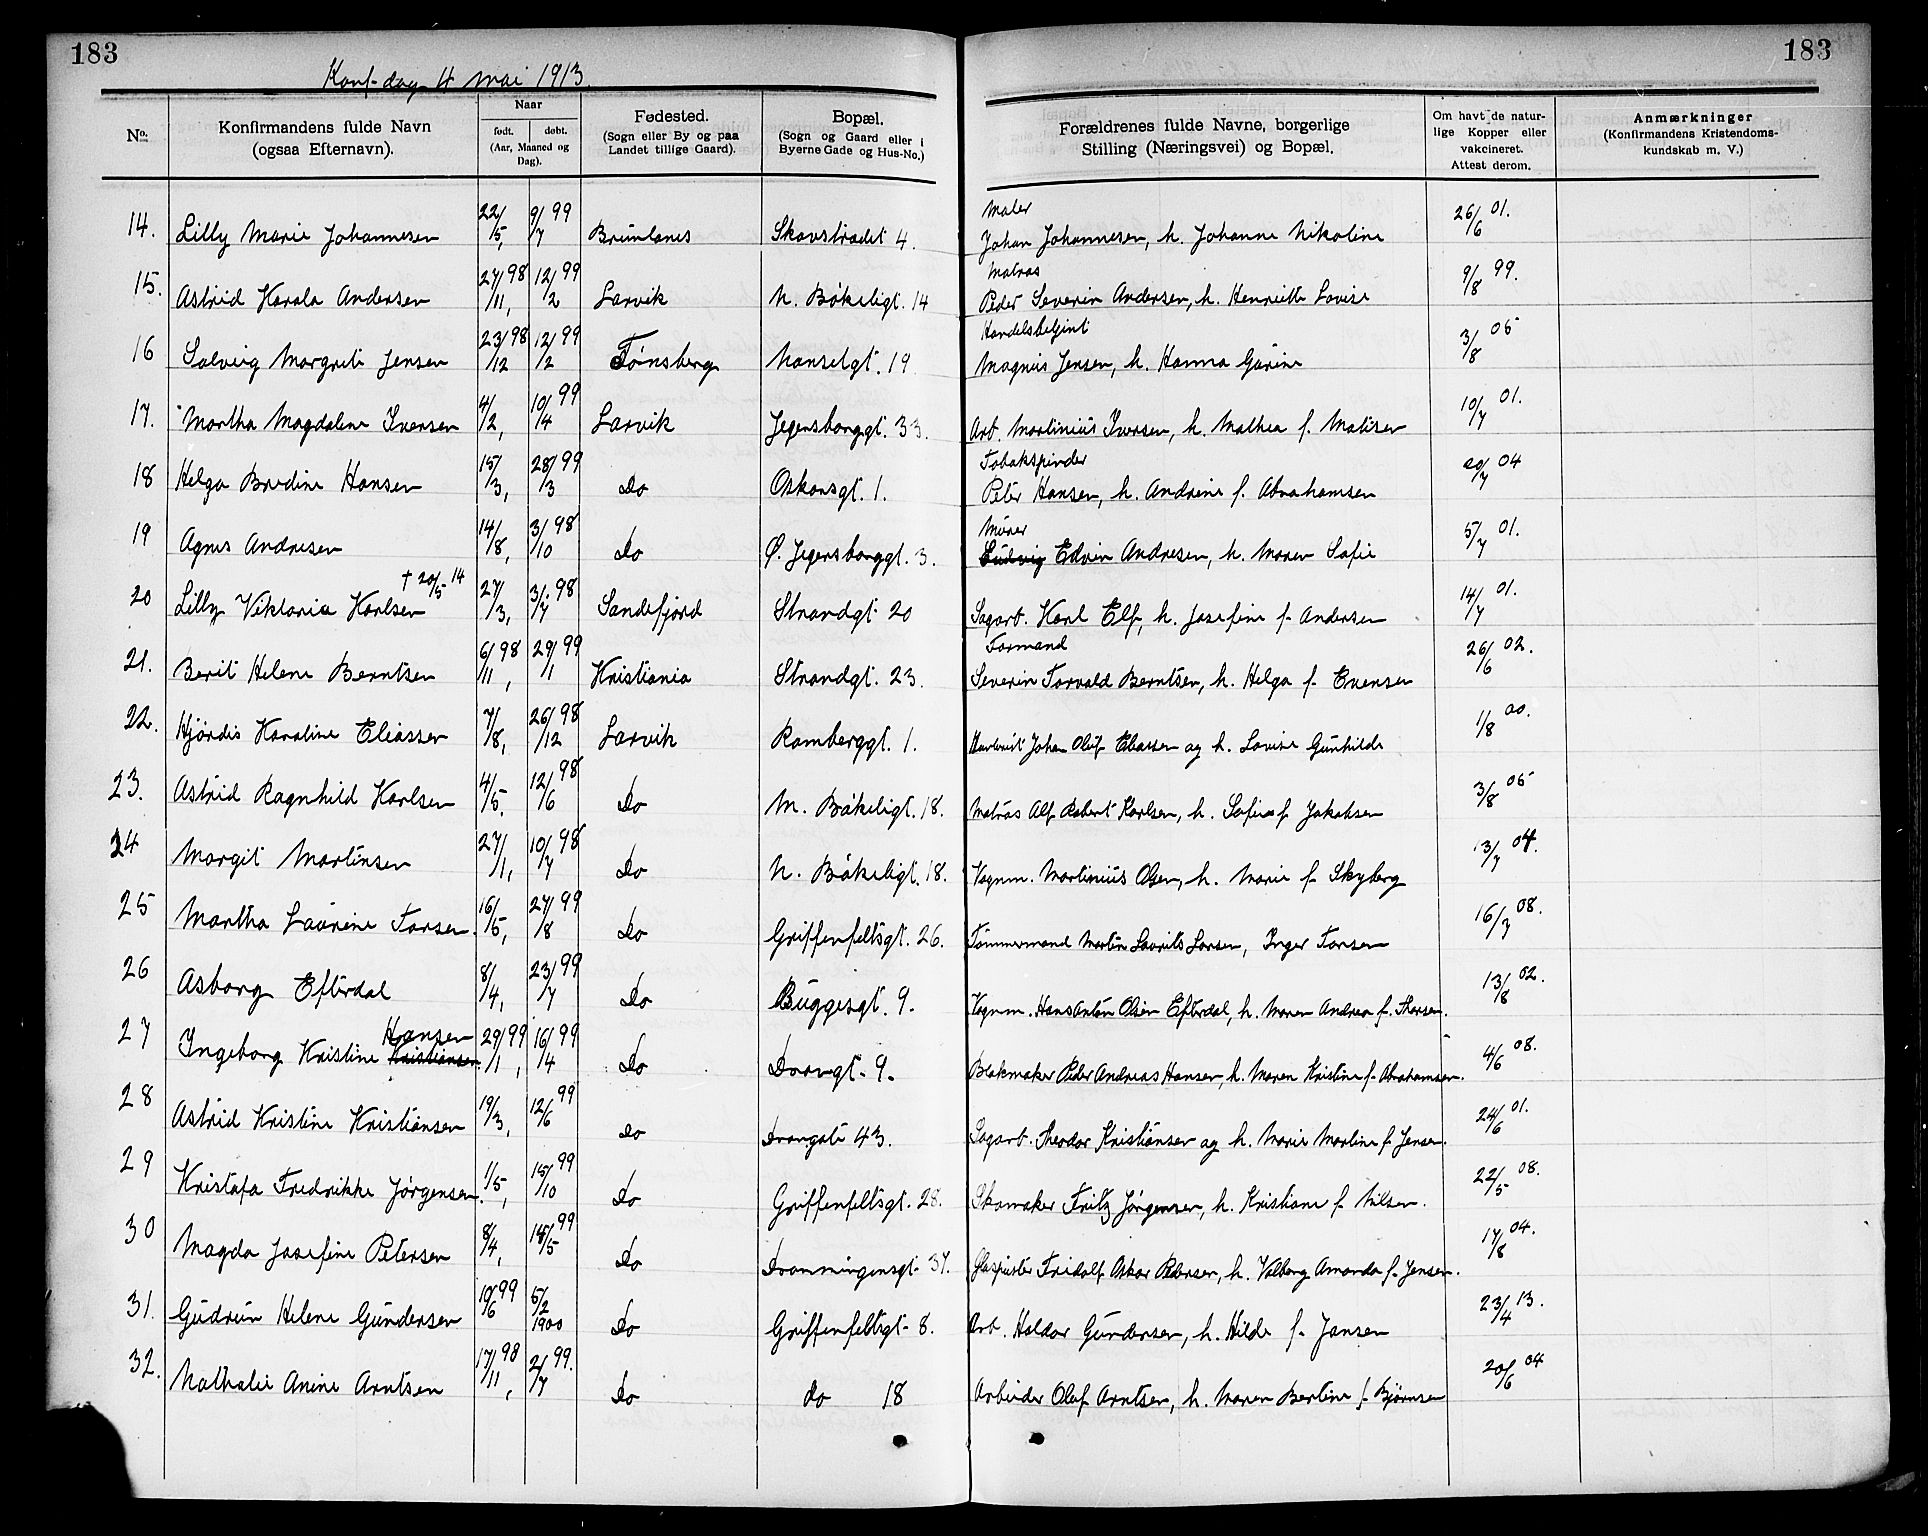 183
183
Konf-dag 4 mai 1913.
No. Konfirmandens fulde Navn (ogsaa Efternavn). Naar født. døbt. (Aar, Maaned og Dag). Fødested. (Sogn eller By og paa Landet tillige Gaard). Bopæl. (Sogn og Gaard eller i Byerne Gade og Hus-No.) Forældrenes fulde Navne, borgerlige Stilling (Næringsvei) og Bopæl. Om havt de naturlige Kopper eller vakcineret. Attest derom. Anmærkninger (Konfirmandens Kristendomskundskab m. V.)
14. Lilly Marie Johannesen 22/5, 9/7 99 Brunlanes Skavstradet 4. Maler Johan Johannesen, h. Johanne Nikoline 26/6 01.
15. Astrid Harala Andersen 27/11, 98 12/2 99 Larvik N. Bökeligt. 14 Matros Peder Severin Andersen, h. Henriette Lovise 9/8 99.
16 Solveig Margrete Jensen 23/12 98 12/2 99 Tønsberg Nanselgt. 19 Handelsbetjent Magnus Jensen, h. Hanna Gurine 3/8 05
17. Martha Magdalene Iversen 4/2, 10/4 99 Larvik Jegersborggt. 33. Arb. Martinius Iversen, h. Mathea f. Matisen 10/7 01.
18 Helga Bredine Hansen 15/3, 28/3 99 Do Oskarsgt. 1. Tobakspinder Peter Hansen, h. Andrine f. Abrahamsen 20/7 04
19 Agnes Andresen 14/8, 3/10 98 Do Ø. Jegersborggt. 3. Murer Ludvig Edvin Andresen, h. Maren Sofie 5/7 01.
20 Lilly Viktoria Karlsen † 20/5 14 27/3, 3/7 98 Sandefjord Strandgt. 20 Sagarb. Karl Elf, h. Josefine f. Andersen 14/7 01.
21. Berit Helene Berntsen 6/11, 98 29/1 99 Kristiania Strandgt. 23. Formand Severin Torvald Berntsen, h. Helga f. Evensen 26/6 02.
22. Hjördis Karoline Eliassen 7/8, 26/12 98 Larvik Ramberggt. 1. Johan Oluf Eliassen og h. Lovise Gunhilde 1/8 00.
23. Astrid Ragnhild Karlsen 4/5. 12/6 98 Do N. Bökeligt. 18. Matros Alf Robert Karlsen, h. Sofie f. Jakobsen 3/8 05
24 Margit Martinsen 27/1, 10/7 98 Do N. Bökeligt. 18. Vognm. Martinius Olsen, h. Marie f. Skyberg 13/7 04.
25 Martha Laurine Larsen. 16/5, 27/8 99 Do Griffenfeltsgt. 26. Tömmermand Martin Laurits Larsen, Inger Larsen 16/7 08.
26 Asborg Efterdal 8/4, 23/7 99 Do Buggesgt. 9. Vognm. Hans Anton Olsen Efterdal, h. Maren Andrea f. Thorsen. 13/8 02.
27 Ingeborg Kristine Kristiansen Hansen 29/1, 99 16/4 99 Do Dronngt. 9. Blokmaker Peder Andreas Hansen, h. Maren Kristine f. Abrahamsen. 4/6 08.
28 Astrid Kristine Kristiansen 19/3, 12/6 99 Do Drongate 43. Sagarb. Theodor Kristiansen og h. Marie Martine f. Jensen. 24/6 01.
29 Kristofa Fredrikke Jørgensen. 1/5, 15/10 99 Do Griffenfeltsgt. 28. Skomaker Fritz Jörgensen, h. Kristiane f. Nilsen. 22/5 08.
30 Magda Josefine Petersen 8/4, 18/5 99 Do Dronningensgt. 37. Glaspuster Fridolf Oskar Petersen, h. Valborg Amanda f. Jensen. 17/8 04.
31. Gudrun Helene Gundersen 10/6 99 5/2 1900 Do Griffenfeltsgt. 8. Arb. Haldor Gundersen, h. Hilde f. Jansen 23/4 13.
32. Nathalie Anine Arntsen 17/11, 98 2/7 99. Do do 18 Arbeider Oluf Arntsen, h. Maren Bertine f. Bjørnsen 20/6 04